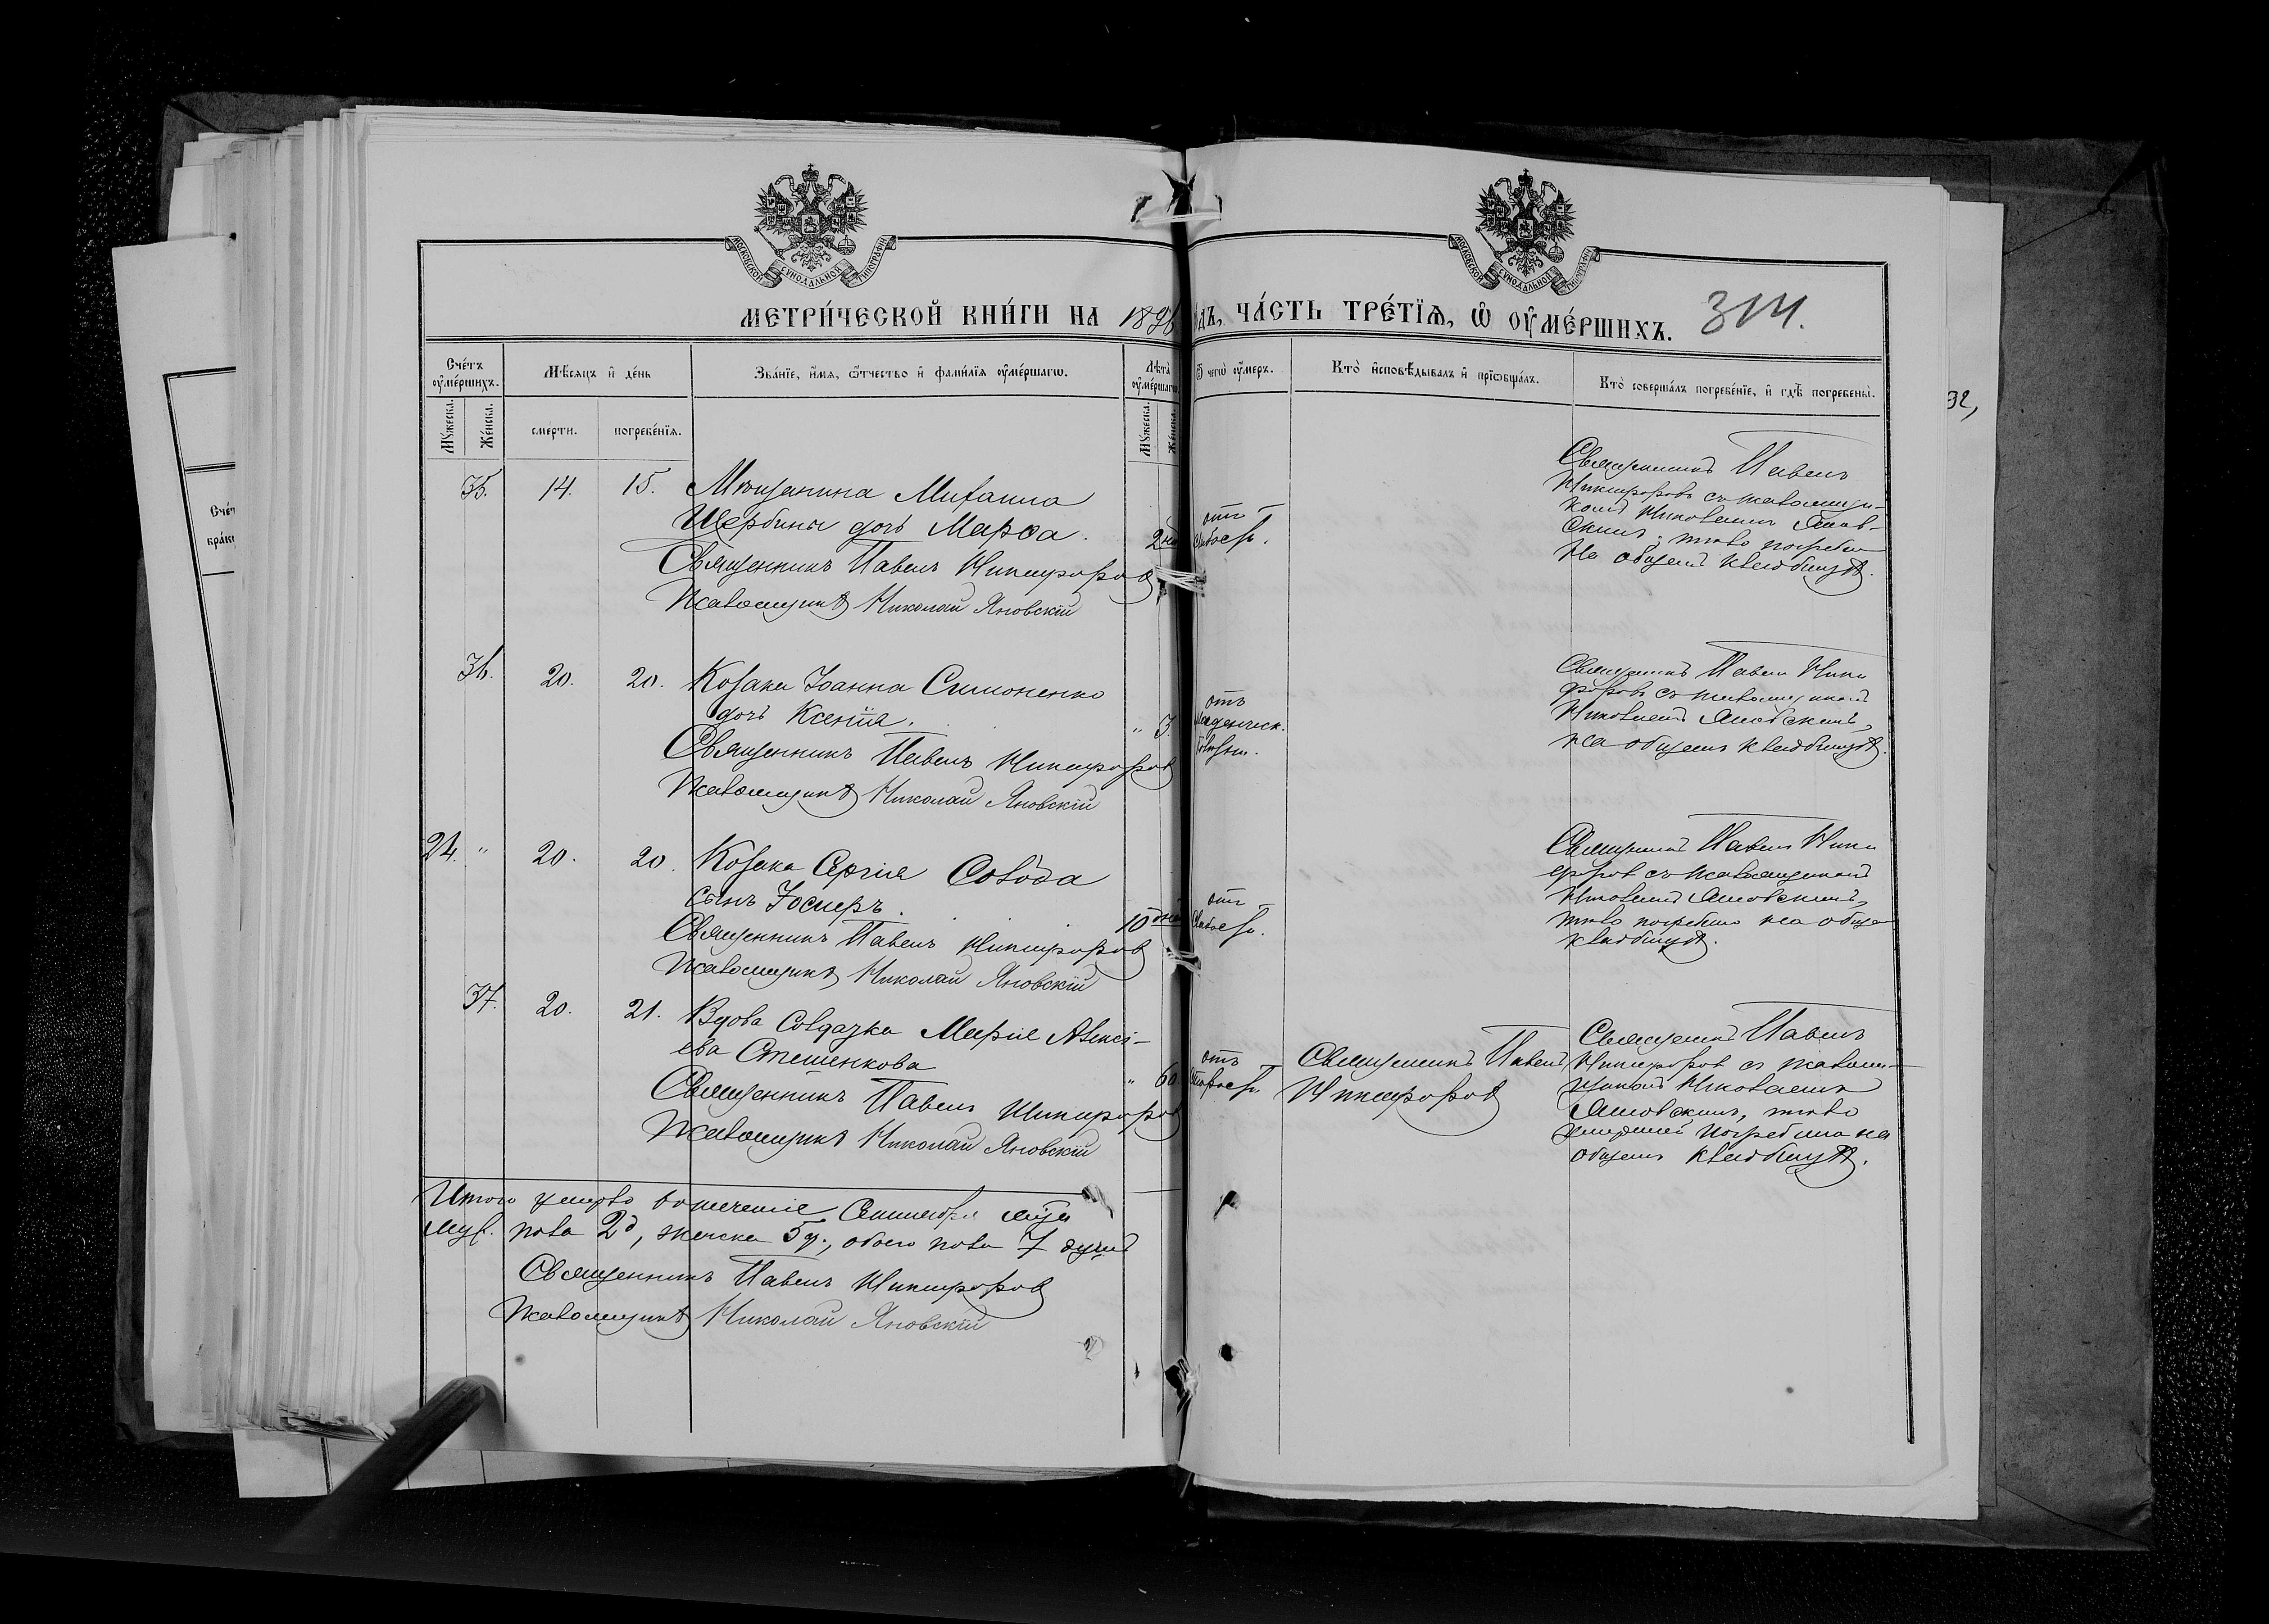 МОСКОВСКОЙ СѴНОДАЛЬНОЙ ТИПОГРАФІИ
МОСКОВСКОЙ СѴНОДАЛЬНОЙ ТИПОГРАФІИ
МЕТРИ́ЧЕСКОЙ КНИ́ГИ НА 1896
ДЪ, ЧА́СТЬ ТРЕ́ТІѦ, Ѡ҆ ОУ҆МЕ́РШИХЪ.
314.
Сче́тъ оу҆ме́ршихъ.
Мѣ́сяцъ и҆ де́нь
Зва́нїе, и҆́мѧ, ѻ҆́тчество и҆ фами́лїѧ оу҆ме́ршагѡ.
Лѣта̀ оу҆ме́ршагѡ
Ѿ чегѡ̀ оу҆́меръ.
Кто̀ и҆сповѣ́дывалъ и҆ прїѡбща́лъ.
Кто̀ соверша́лъ погребе́нїе, и҆ гдѣ̀ погребены̀.
Мꙋ́жеска.
Же́нска.
сме́рти.
погребе́нїѧ.
Мꙋ́жеска.
Же́нска.
Сче́т
бра́кѡ
92,
35. 14. 15. Мѣщанина Михаила
Щербины дочь Марѳа.
Священникъ Павелъ Никифоровъ
Псаломщикъ Николай Яновскій
2
отъ
слабости.
Священникъ Павелъ
Никифоровъ съ псаломщи-
комъ Николаемъ Янов-
скимъ, тѣло погребено
на общемъ кладбищѣ.
36. 20. 20. Козака Іоанна Симоненко
дочь Ксенія.
Священникъ Павелъ Никифоровъ
Псаломщикъ Николай Яновскій
" 3.
отъ
младенческ.
болѣзни.
Священникъ Павелъ Ники
форовъ съ псаломщикомъ
Николаемъ Яновскимъ,
на общемъ кладбищѣ.
24. " 20. 20. Козака Сергія
сынъ Іосифъ.
Священникъ Павелъ Никифоровъ
Псаломщикъ Николай Яновскій
10 дней
отъ
слабости.
Священникъ Павелъ Ники
форовъ съ псаломщикомъ
Николаемъ Яновскимъ,
тѣло погребено на общем
кладбищѣ.
37. 20. 21. Вдова Солдатка Марія
Стешенкова
Священникъ Павелъ Никифоровъ
Псаломщикъ Николай Яновскій
" 60.
отъ
старости.
Священникъ Павелъ
Никифоровъ
Священникъ Павелъ
Никифоровъ съ псалом-
щикомъ Николаемъ
Яновскимъ, тѣло
умершей погребено на
общемъ кладбищѣ.
Итого умерло въ теченіе Сентября мѣся
муж. пола 2д, женска 5д., обоего пола 7 душъ
Священникъ Павелъ Никифоровъ
Псаломщикъ Николай Яновскій